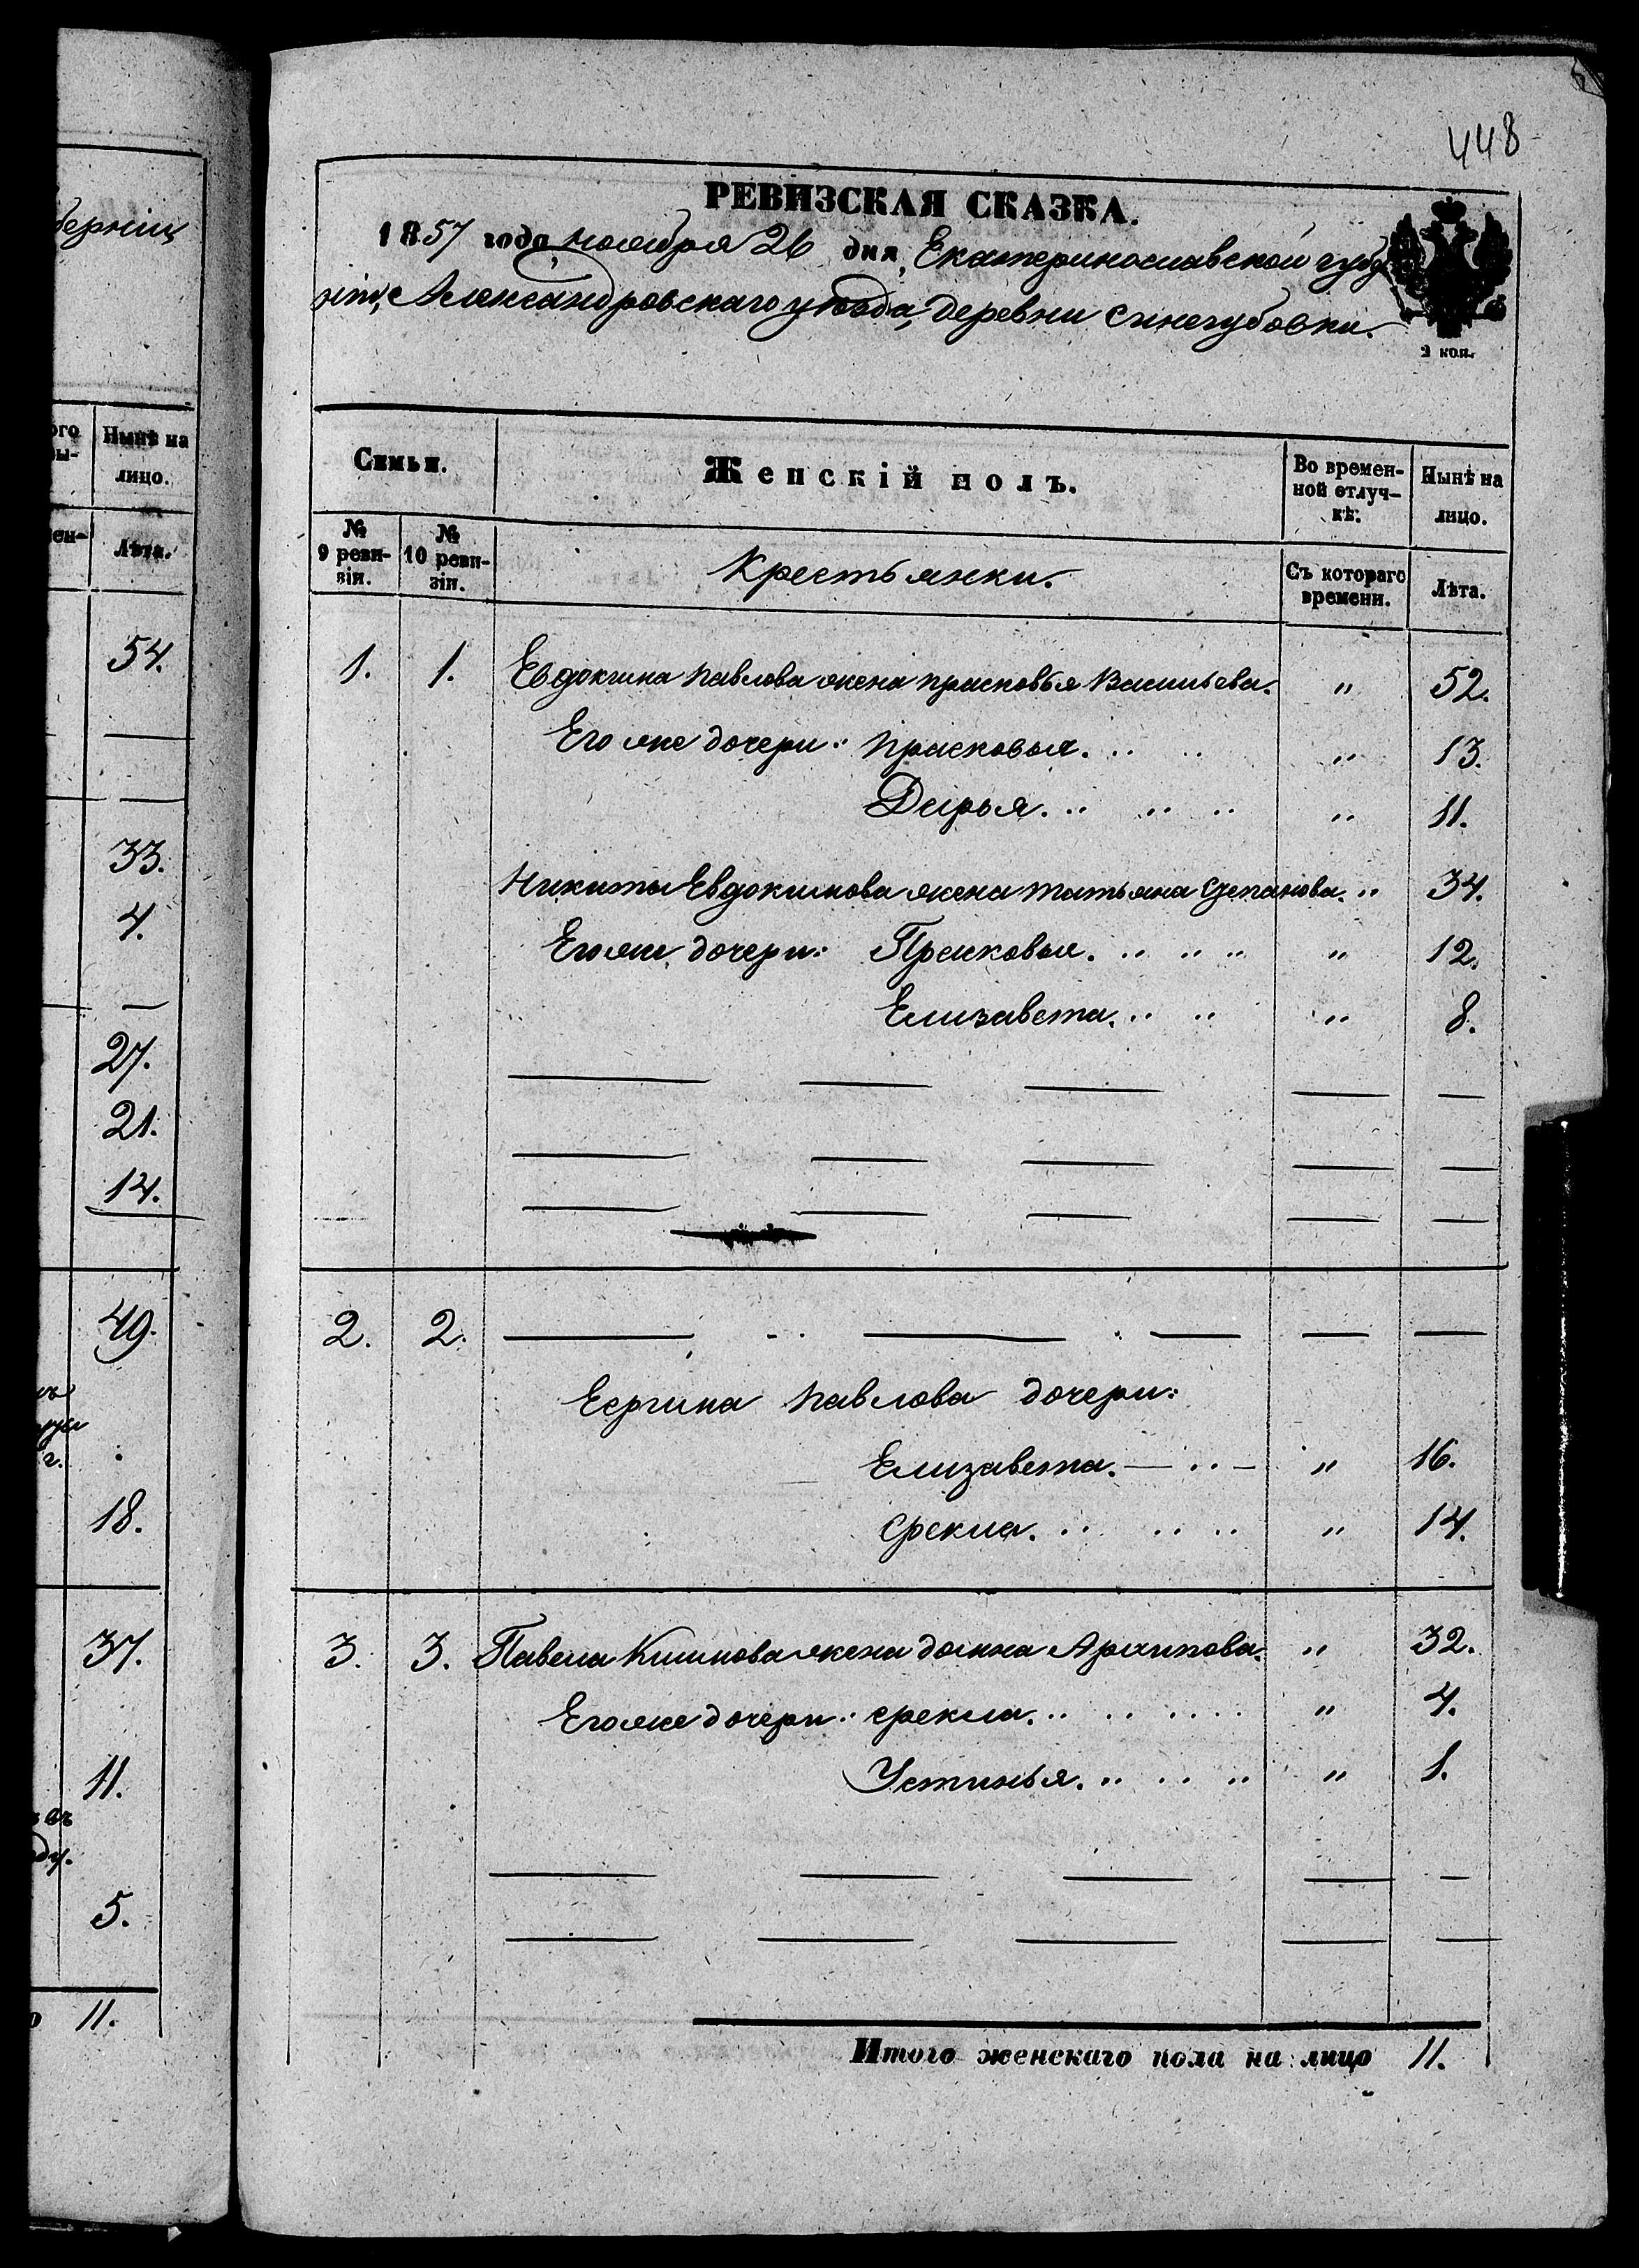 448
РЕВИЗСКАЯ СКАЗКА.
1857 года, ноября 26 дня, Екатеринославской губер
ніи, Александровскаго уѣзда, деревни Синегубовки.
2 коп.
Семьи.
Женскій полъ.
Во времен-
ной отлуч-
кѣ.
Нынѣ на
лицо.
№
9 реви-
зіи.
№
10 реви-
зіи.
Крестьянки.
Съ котораго
времени.
Лѣта.
1. 1. Евдокима Павлова жена Прасковья Васильева. " 52.
Его же дочери: Прасковья. " 13.
Дарья. " 11.
Никиты Евдокимова жена Татьяна Степанова. " 34.
Его же дочери: Прасковья. " 12.
Елизавета. " 8.
2. 2.
Павлова дочери:
Елизавета. " 16.
Фекла. " 14.
3. 3. Павела жена Домна Архипова. " 32.
Его же дочери: Фекла. " 4.
Устинья. " 1.
Итого женскаго пола на лицо 11.
берніи
Нынѣ на
лицо.
Лѣта.
54.
33.
4.
27.
21.
14.
49.
18.
37.
11.
5.
11.